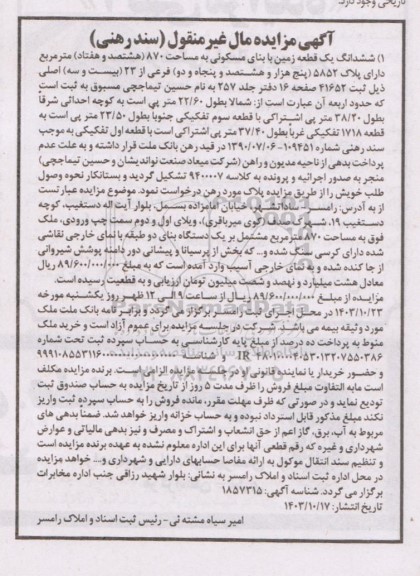 آگهی مزایده مال غیر منقول (سند رهنی)
۱) ششدانگ یک قطعه زمین با بنای مسکونی به مساحت ۸۷۰ (هشتصد و هفتاد) مترمربع
دارای پلاک ۵۸۵۲ (پنج هزار و هشتصد و پنجاه و دو) فرعی از ۲۳ (بیست و سه) اصلی
ذیل ثبت ۴۱۶۵۲ صفحه ۱۶ دفتر جلد ۲۵۷ به نام حسین تیماجچی مسبوق به ثبت است
که حدود اربعه آن عبارت است از: شمالا بطول ۲۲/۶۰ متر پی است به کوچه احداثی شرقاً
بطول ۳۸/۲۰ متر پی اشتراکی با قطعه سوم تفکیکی جنوباً بطول ۲۳/۵۰ متر پی است به
قطعه ۱۷۱۸ تفکیکی غرباً بطول ۳۷/۴۰ متر پی اشتراکی است با قطعه اول تفکیکی به موجب
سند رهنی شماره ۱۰۹۴۵۱-۱۳۹۰/۰۷/۰۶ در قید رهن بانک ملت قرار داشته و به علت عدم
پرداخت بدهی از ناحیه مدیون و راهن (شرکت میعاد صنعت نواندیشان و حسین تیماجچی)
منجر به صدور اجرائیه و پرونده به کلاسه ۹۴۰۰۰۰۷ تشکیل گردید و بستانکار نحوه وصول
طلب خویش را از طریق مزایده پلاک مورد رهن درخواست نمود. موضوع مزایده عبارتست
از به آدرس: رامسر، سادات شهر، خیابان امامزاده بسمل، بلوار آیت اله دستغیب، کوچه
دستغیب ۱۹، شهرک (کوی میرباقری)، ویلای اول و دوم سمت چپ ورودی، ملک
فوق به مساحت ۸۷۰ مترمربع مشتمل بر یک دستگاه بنای دو طبقه با نمای خارجی نقاشی
شده دارای کرسی سنگ شده و... که بخش از پرسیانا و پیشانی دور دامنه پوشش شیروانی
از جا کنده شده و به نمای خارجی آسیب وارد آمده است که به مبلغ ۸۹/۶۰۰/۰۰۰/۰۰۰ ریال
معادل هشت میلیارد و نهصد و شصت میلیون تومان ارزیابی و به قطعیت رسیده است.
مزایده از مبلغ ۸۹/۶۰۰/۰۰۰/۰۰۰ ریال از ساعت ۹ الی ۱۲ ظهر روز یکشنبه مورخه
۱۴۰۳/۱۰/۲۳ در محل اجرای ثبت رامسر برگزار می گردد و برابر نامه بانک ملت ملک
مورد وثیقه بیمه می باشد. شرکت در جلسه مزایده برای عموم آزاد است و خرید ملک
منوط به پرداخت ده درصد از مبلغ پایه کارشناسی به حساب سپرده ثبت تحت شماره
IR و شناسه
و حضور خریدار یا نماینده قانونی او در جلسه مزایده الزامی است. برنده مزایده مکلف
است مابه التفاوت مبلغ فروش را ظرف مدت ۵ روز از تاریخ مزایده به حساب صندوق ثبت
تودیع نماید و در صورتی که ظرف مهلت مقرر، مانده فروش را به حساب سپرده ثبت واریز
نکند مبلغ مذکور قابل استرداد نبوده و به حساب خزانه واریز خواهد شد. ضمنا بدهی های
مربوط به آب، برق، گاز اعم از حق انشعاب و اشتراک و مصرف و نیز بدهی مالیاتی و عوارض
شهرداری و غیره که رقم قطعی آنها برای این اداره معلوم نشده به عهده برنده مزایده است
و تنظیم سند انتقال موکول به ارائه مفاصا حسابهای دارایی و شهرداری و... خواهد مزایده
در محل اداره ثبت اسناد و املاک رامسر به نشانی: بلوار شهید رزاقی جنب اداره مخابرات
برگزار می گردد. شناسه آگهی: ۱۸۵۷۳۱۵
تاریخ انتشار: ۱۴۰۳/۱۰/۱۷
امیر سیاه مشته ئی - رئیس ثبت اسناد و املاک رامسر